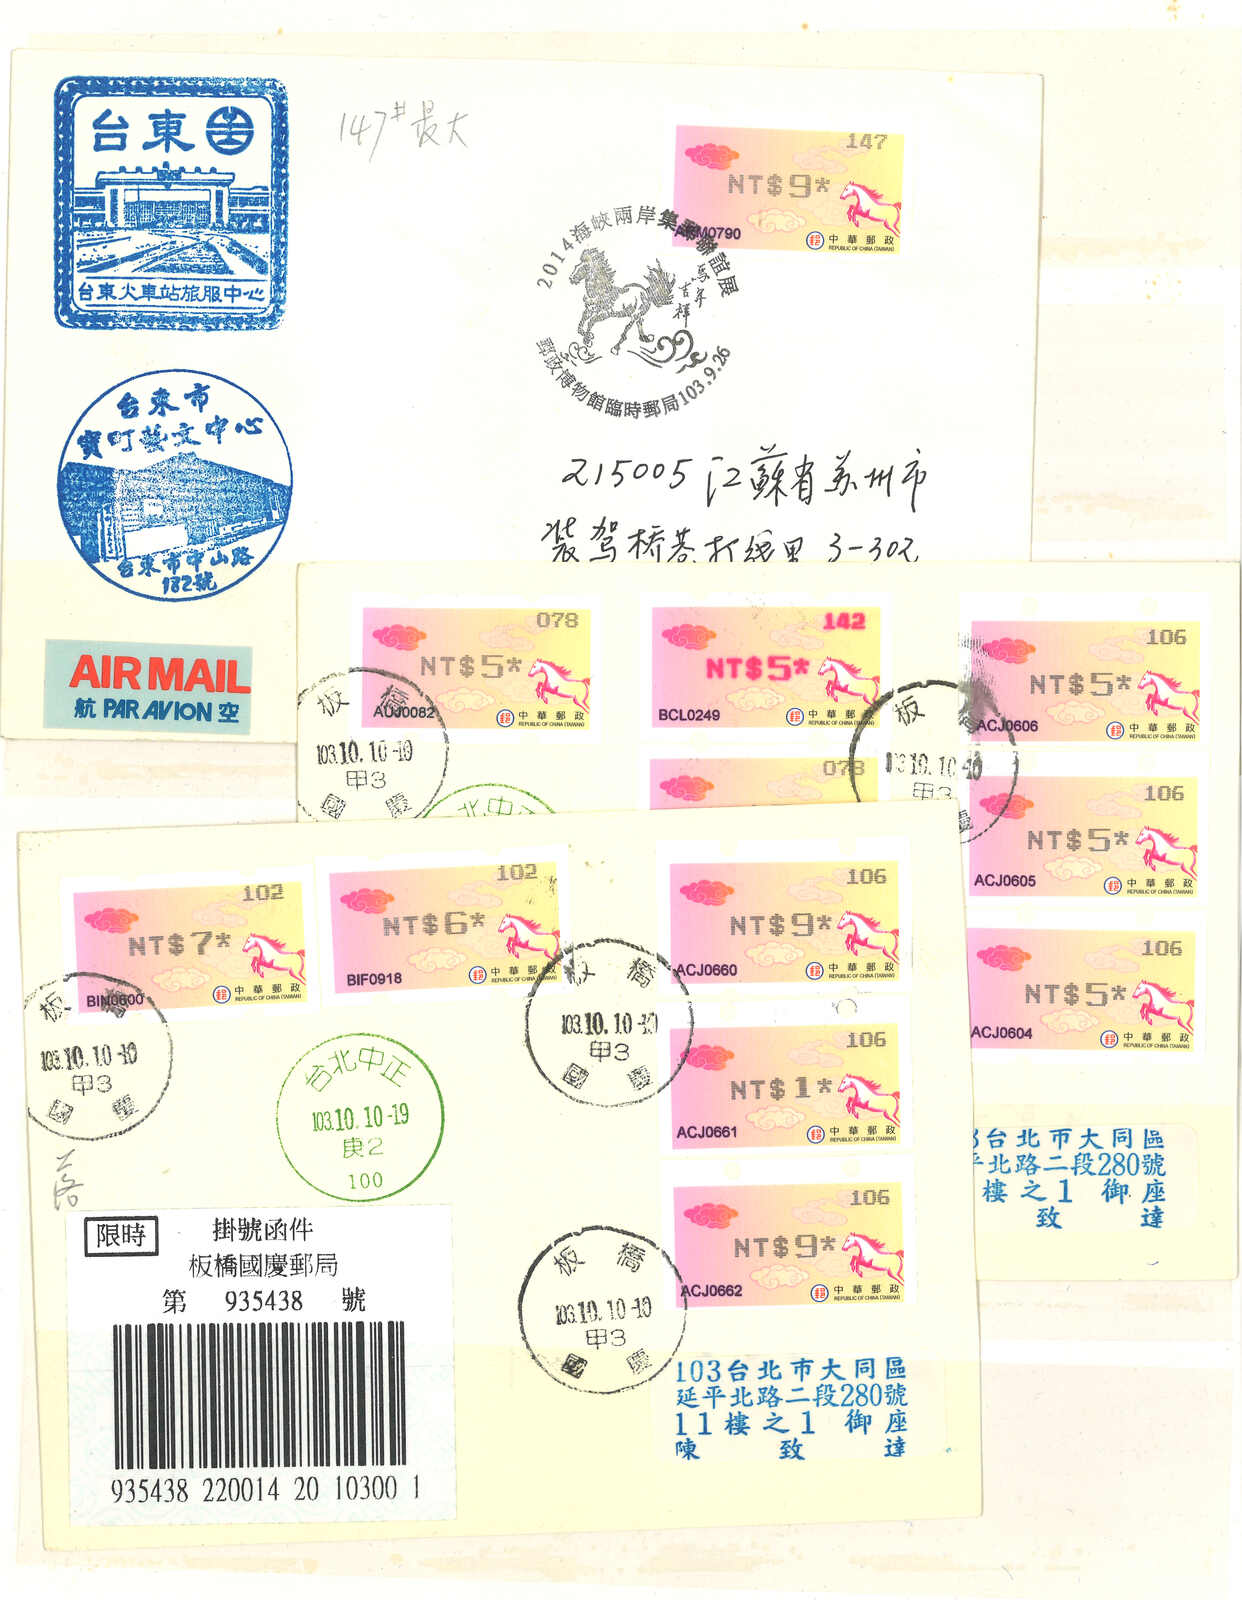 台東
台東火車站旅服中心
台東市
寶町藝文中心
台東市中山路
182號
AIR MAIL
航 PAR AVION 空
147# 最大
147
NT$9*
M0790
中華郵政
REPUBLIC OF CHINA (TAIWAN)
2014海峽兩岸集郵聯誼展
馬年
吉祥
郵政博物館臨時郵局103.9.26
215005 江蘇省苏州市
装驾桥巷打线里 3-302
078
NT$5*
AUJ0082
中華郵政
REPUBLIC OF CHINA (TAIWAN)
142
NT$5*
BCL0249
中華郵政
REPUBLIC OF CHINA (TAIWAN)
106
NT$5*
ACJ0606
中華郵政
REPUBLIC OF CHINA (TAIWAN)
板橋
103.10.10-19
甲3
國慶
北中正
078
板
103.10.10-19
甲3
慶
106
NT$5*
ACJ0605
中華郵政
REPUBLIC OF CHINA (TAIWAN)
106
NT$5*
ACJ0604
中華郵政
REPUBLIC OF CHINA (TAIWAN)
3台北市大同區
平北路二段280號
樓之1 御座
致達
102
NT$7*
BIN0600
中華郵政
REPUBLIC OF CHINA (TAIWAN)
102
NT$6*
BIF0918
中華郵政
REPUBLIC OF CHINA (TAIWAN)
106
NT$9*
ACJ0660
中華郵政
REPUBLIC OF CHINA (TAIWAN)
板橋
103.10.10-19
甲3
國慶
台北中正
103.10.10-19
庚2
100
板橋
103.10.10-19
甲3
國慶
106
NT$1*
ACJ0661
中華郵政
REPUBLIC OF CHINA (TAIWAN)
106
NT$9*
ACJ0662
中華郵政
REPUBLIC OF CHINA (TAIWAN)
板橋
103.10.10-19
甲3
國慶
限時 掛號函件
板橋國慶郵局
第 935438 號
935438 220014 20 10300 1
103台北市大同區
延平北路二段280號
11樓之1 御座
陳致達